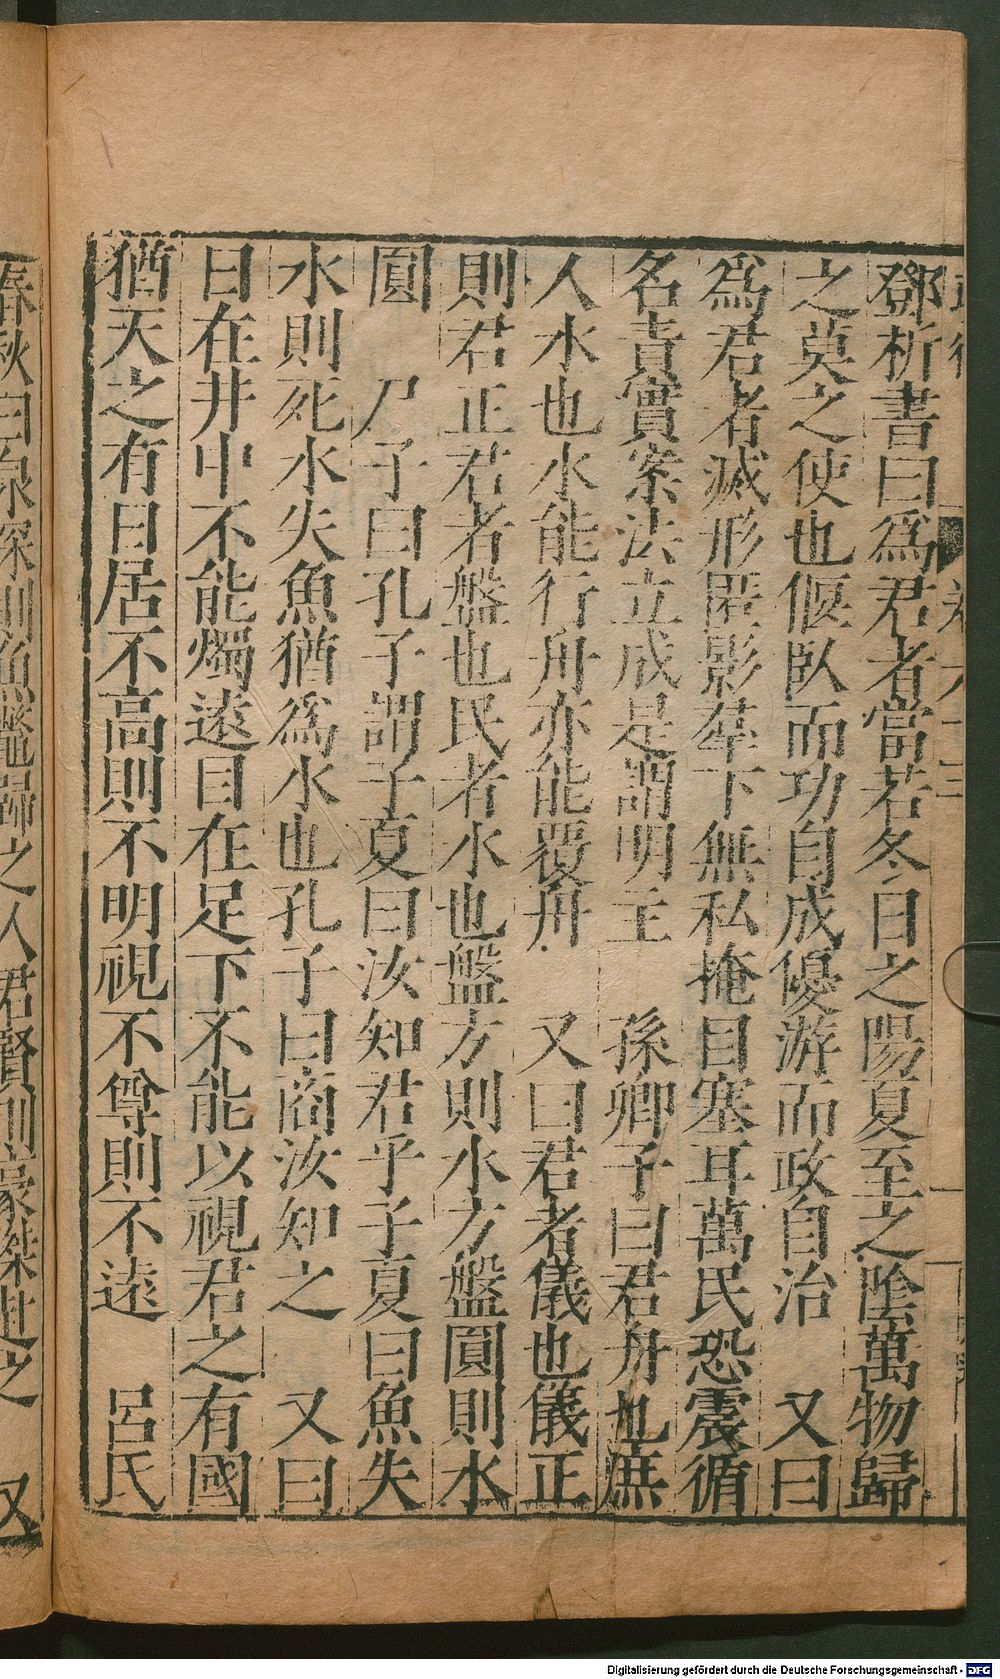 鄧析書曰爲君者當若冬日之陽夏至之陰萬物歸
之莫之使也偃臥而功自成優游而政自治　又曰
爲君者滅形匿影羣下無私掩目塞耳萬民恐震循
名責實案法立成是謂明主　孫卿子曰君舟也庶
人水也水能行舟亦能覆舟　又曰君者儀也儀正
則君正君者盤也民者水也盤方則水方盤圓則水
圓　尸子曰孔子謂子夏曰汝知君乎子夏曰魚失
水則死水失魚猶爲水也孔子曰商汝知之　又曰
日在井中不能燭遠目在足下不能以視君之有國
猶天之有日居不高則不明視不尊則不遠　呂氏
春秋曰泉深則魚鼈歸之人君賢則豪桀進之　又
Digitalisierung gefördert durch die Deutsche Forschungsgemeinschaft - DFG